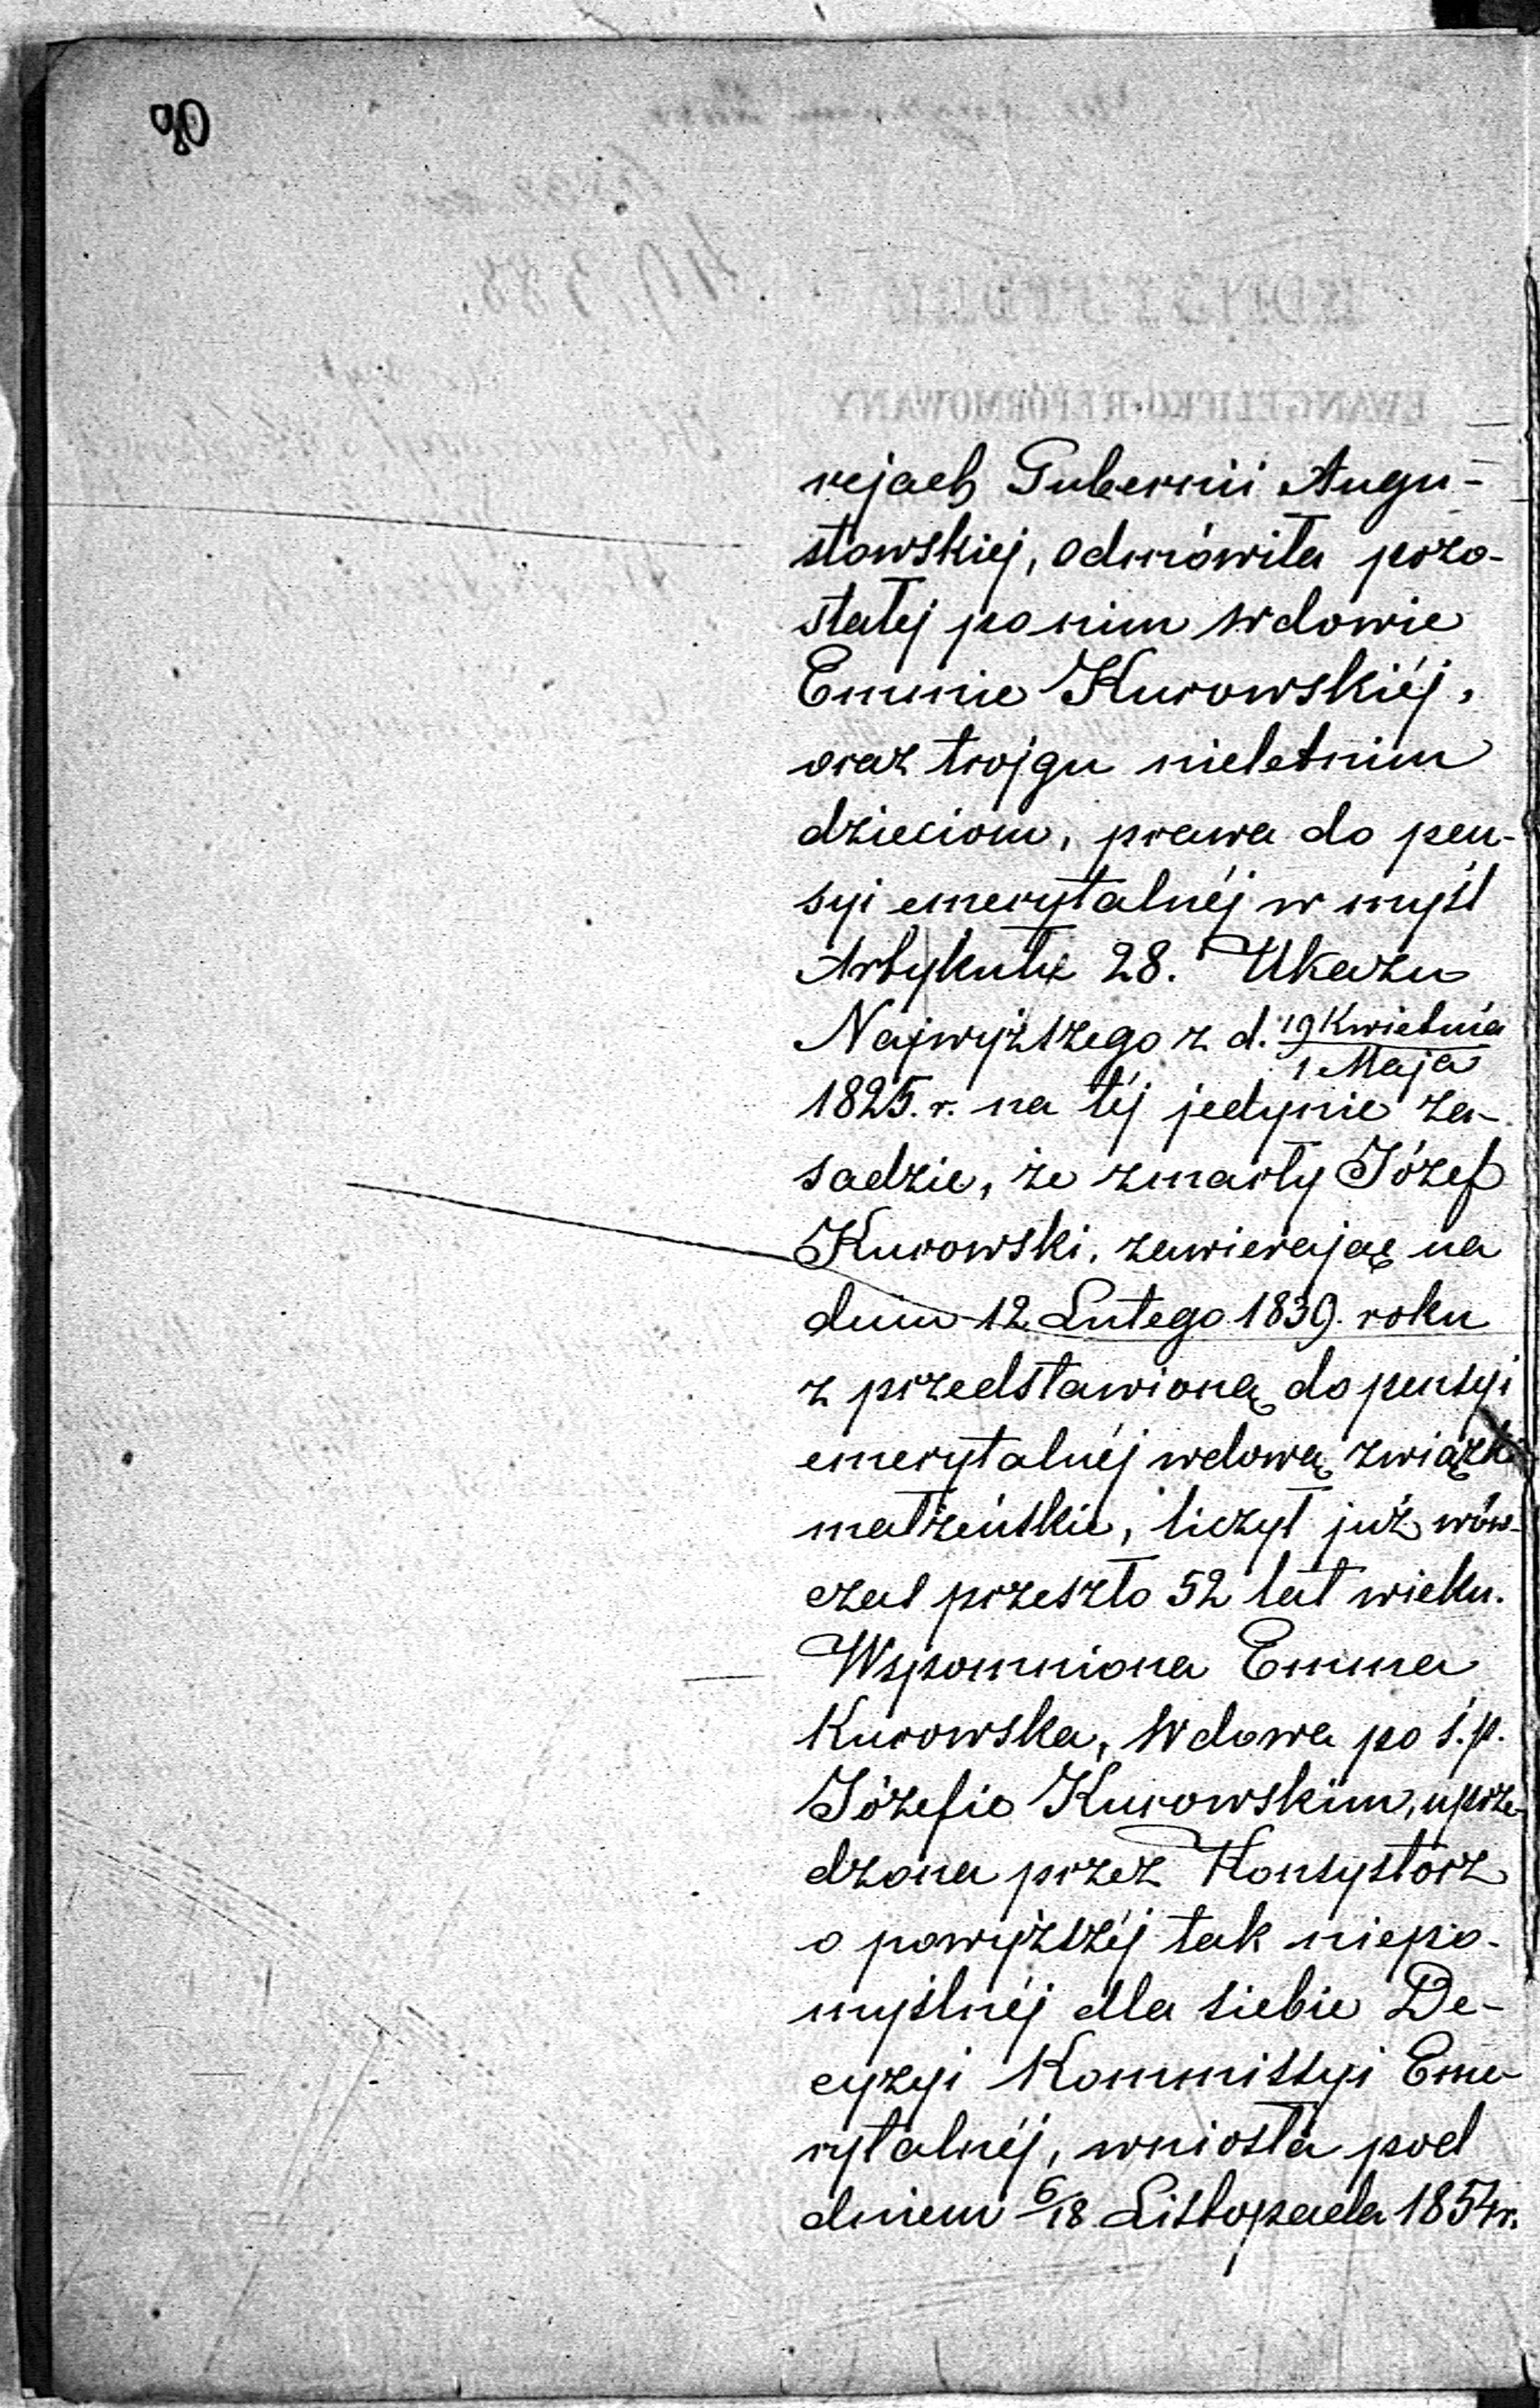 rejach Gubernii Augu-
stowskiej, odmówiła pozo-
stałej po nim wdowie
Emmie Kurowskiéj,
oraz trojgu nieletnim
dzieciom, prawa do pen-
syi emerytalnéj w myśl
Artykułu 28. Ukazu
Najwyższego z d. 19 Kwietnia
1 Maja
1825. r. na téj jedynie za-
sadzie, że zmarły Józef
Kurowski, zawierając na
dniu 12 Lutego 1839. roku
z przedstawioną do pensyi
emerytalnéj wdową związki
małżeńskie, liczył już wów-
czas przeszło 52 lat wieku.
Wspomniona Emma
Kurowska, Wdowa po ś.p.
Józefie Kurowskim, uprze-
dzona przez Konsystorz
o powyższéj tak niepo-
myślnéj dla siebie De-
cyzyi Kommissyi Eme-
rytalnéj, wniosła pod
dniem 6/18 Listopada 1854r.
EWANGELICKO-REFORMOWANY